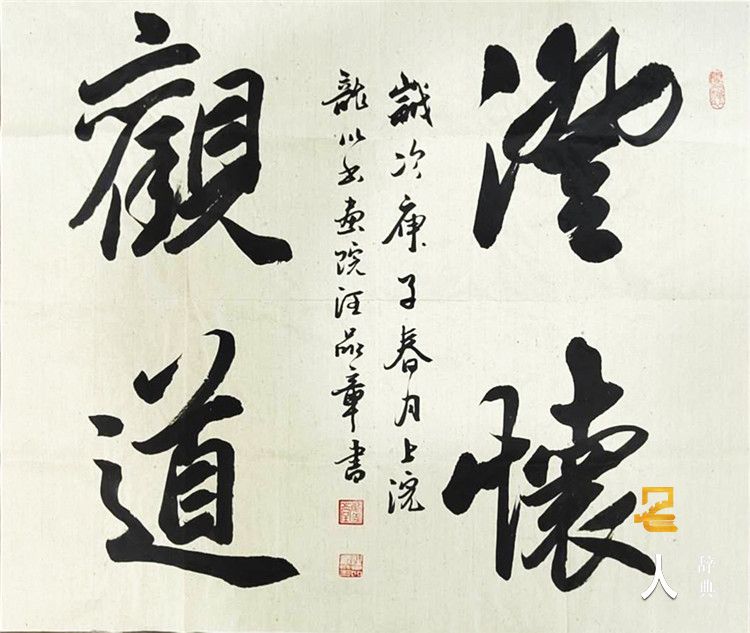 澄懷
觀道
歲次庚子春月上浣
龍山书畫院汪品章書
名人
辞典